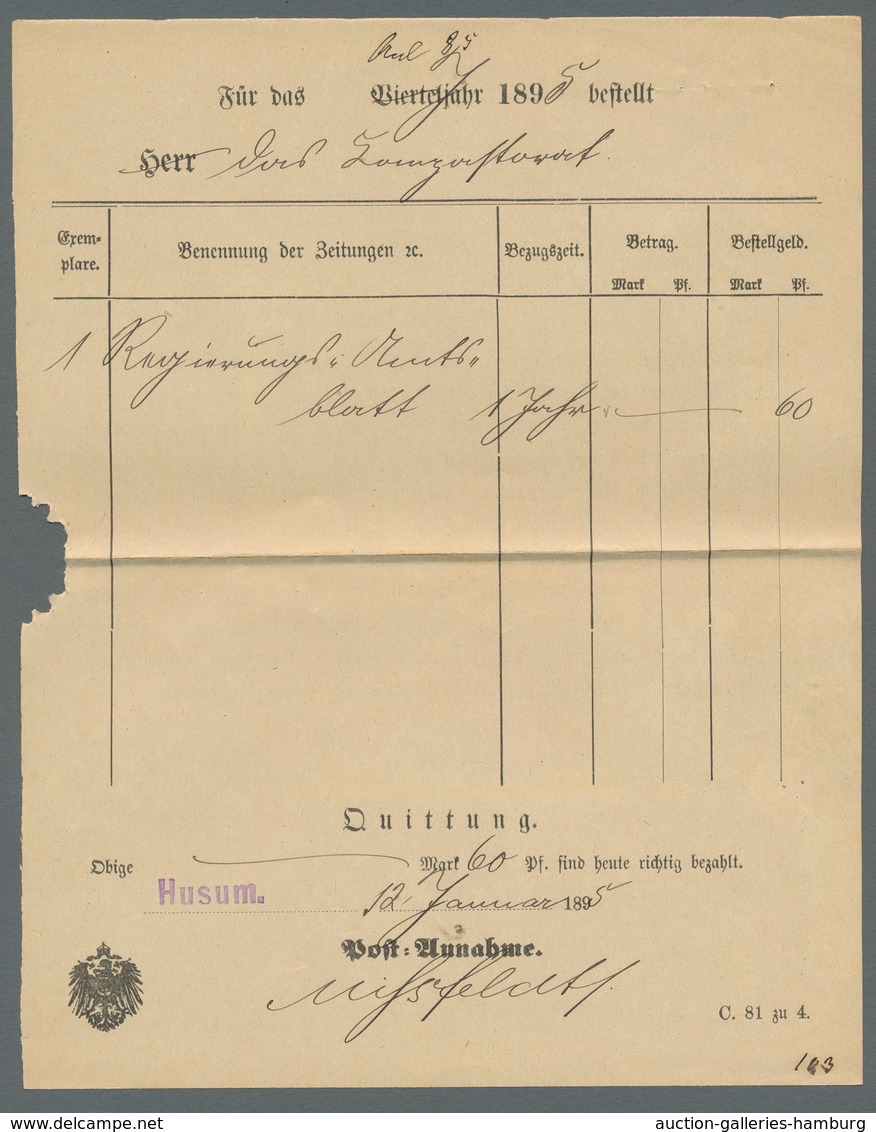 Für das Vierteljahr 1895 bestellt
Herr Das Compastorat.
Exem-
plare.
Benennung der Zeitungen ꝛc.
Bezugszeit.
Betrag.
Mark Pf.
Bestellgeld.
Mark Pf.
1 Regierungs-Amts-
blatt 1 Jahr 60
Quittung.
Obige Mark 60 Pf. sind heute richtig bezahlt.
Husum. 12 Januar 1895
Post-Annahme.
C. 81 zu 4.
103
www.delcampe.net
auction-galleries-hamburg